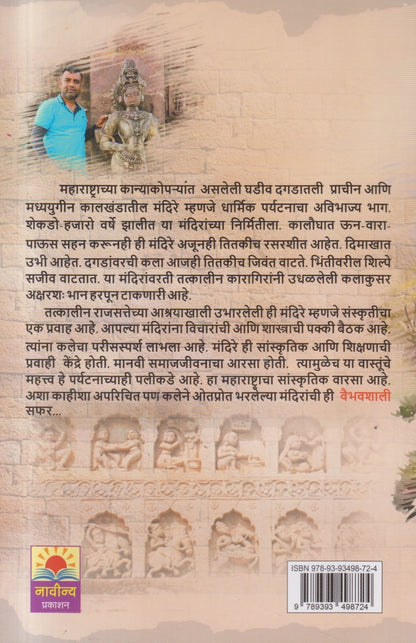 महाराष्ट्राच्या कान्याकोपऱ्यांत असलेली घडीव दगडातली प्राचीन आणि
मध्ययुगीन कालखंडातील मंदिरे म्हणजे धार्मिक पर्यटनाचा अविभाज्य भाग.
शेकडो-हजारो वर्षे झालीत या मंदिरांच्या निर्मितीला. काळौघात ऊन-वारा-
पाऊस सहन करूनही ही मंदिरे अजूनही तितकीच रसरशीत आहेत. दिमाखात
उभी आहेत. दगडांवरची कला आजही तितकीच जिवंत वाटते. भिंतीवरील शिल्पे
सजीव वाटतात. या मंदिरांवरती तत्कालीन कारागिरांनी उधळलेली कलाकुसर
अक्षरशः भान हरपून टाकणारी आहे.
तत्कालीन राजसत्तेच्या आश्रयाखाली उभारलेली ही मंदिरे म्हणजे संस्कृतीचा
एक प्रवाह आहे. आपल्या मंदिरांना विचारांची आणि शास्त्राची पक्की बैठक आहे.
त्यांना कलेचा परीसस्पर्श लाभला आहे. मंदिरे ही सांस्कृतिक आणि शिक्षणाची
प्रवाही केंद्रे होती. मानवी समाजजीवनाचा आरसा होती. त्यामुळेच या वास्तूंचे
महत्त्व हे पर्यटनाच्याही पलीकडे आहे. हा महाराष्ट्राचा सांस्कृतिक वारसा आहे.
अशा काहीशा अपरिचित पण कलेने ओतप्रोत भरलेल्या मंदिरांची ही वैभवशाली
सफर...
नावीन्य
प्रकाशन
ISBN 978-93-93498-72-4
9 789393 498724